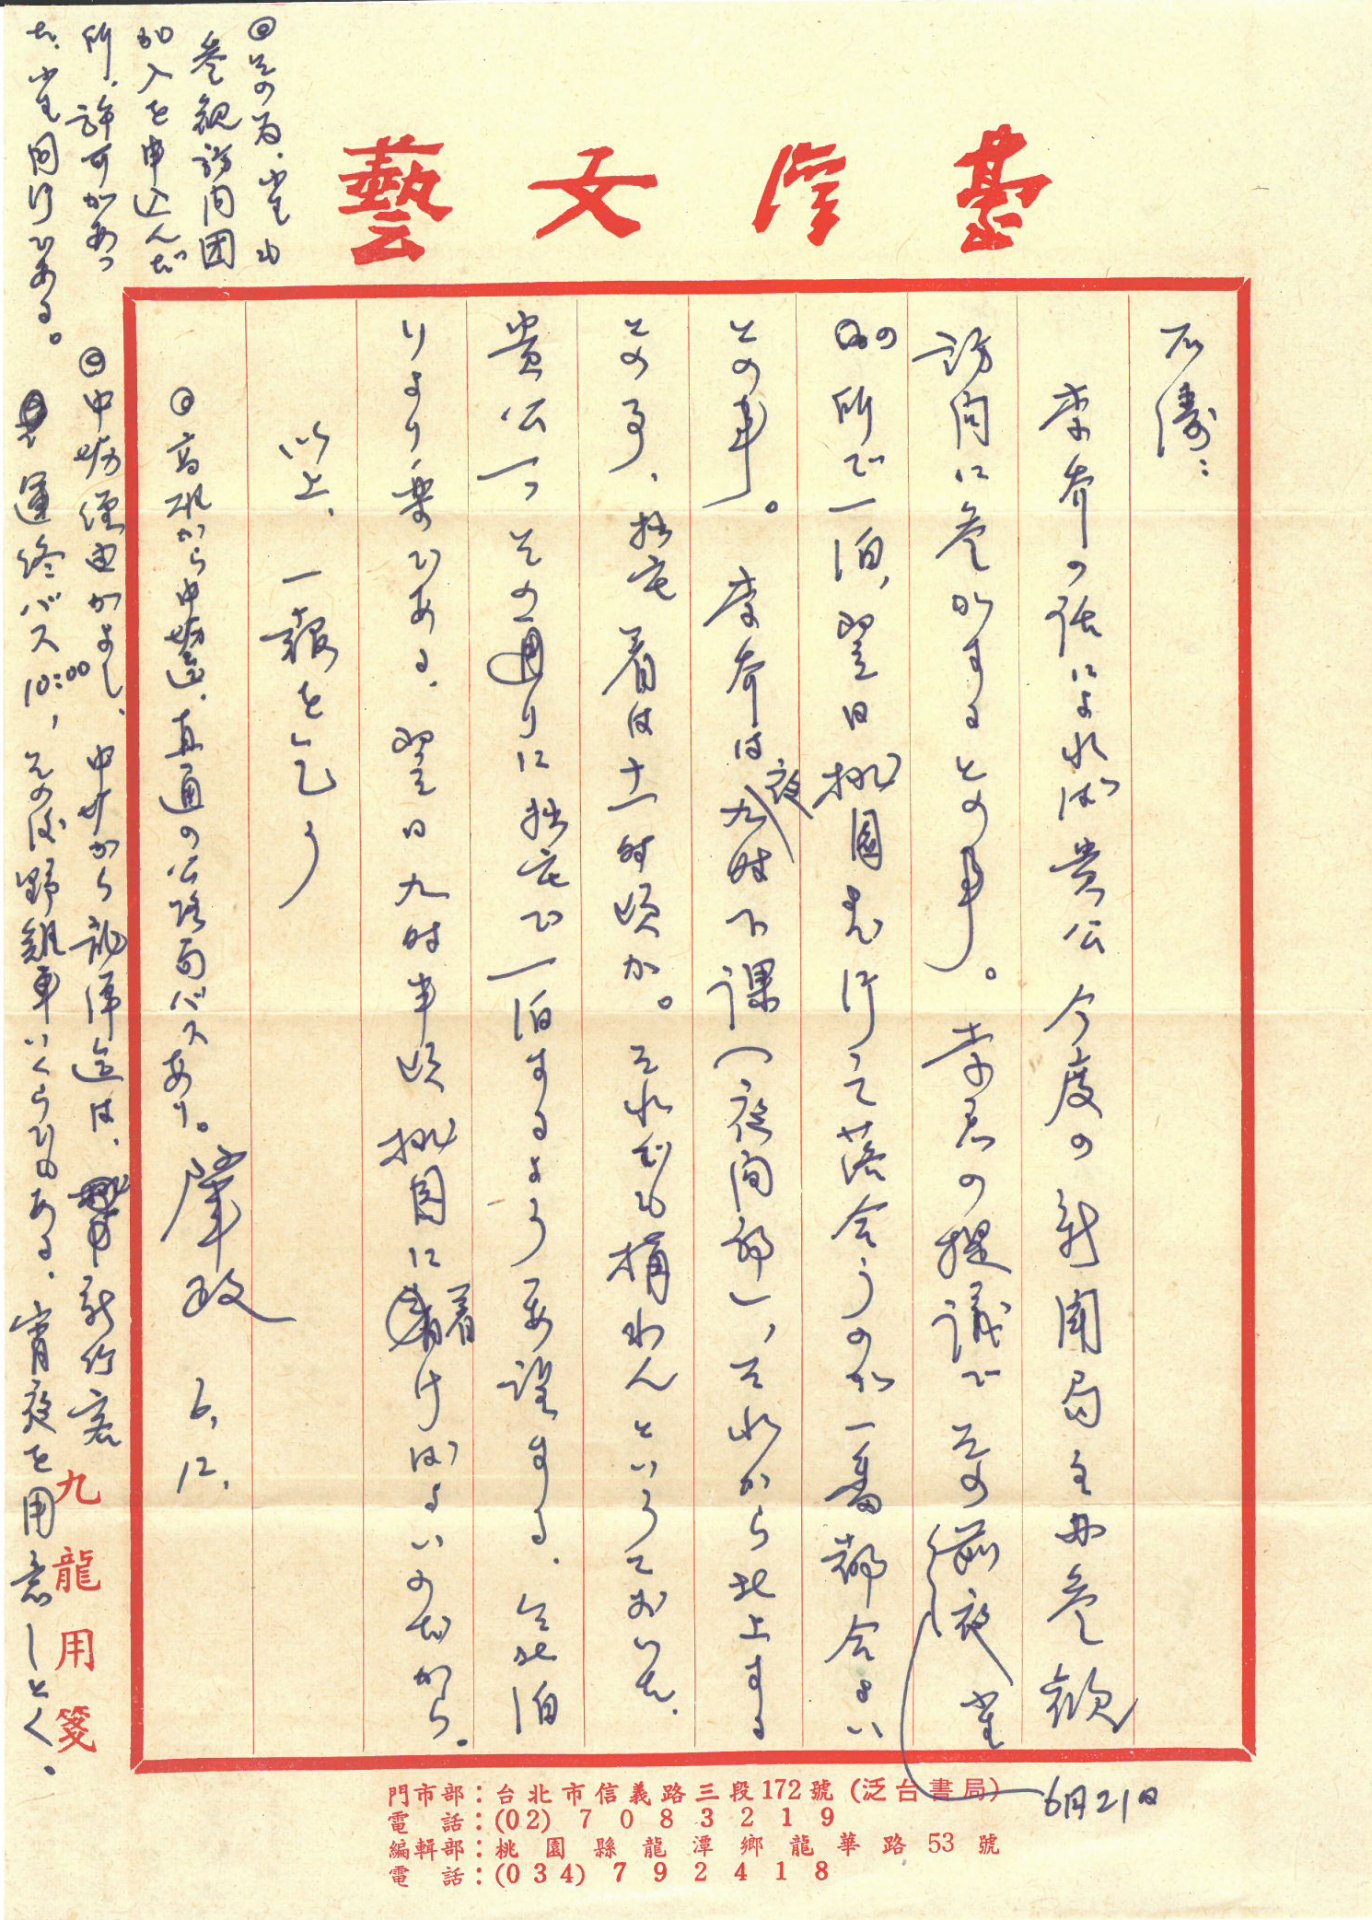 臺灣文藝
石濤:
李喬の話によれば貴公今度の新聞局主办參観
訪問に参加するとの事。李君の提議でその前夜小生
6月21日
の所で一泊、翌日桃園え行って落合うのが一番都合よい
との事。李喬は夜九時下課(夜間部)、それから北上する
との事、拙宅着は十一時頃か。それでも構わんといっておいた。
貴公一つその通りに拙宅で一泊するよう要望する。台北泊
りより楽である。翌日九時半頃桃園に着けばよいのだから。
以上、一報を乞う
◎高雄から中壢迄、直通の公路局バスあり。
肇政 6.12.
◎その為、小生も
參観訪問団
加入を申込んだ
所、許可があっ
た、小生同行である。
◎中壢経由がよし、中壢から龍潭迄は、新竹客
運終バス10:00、その後野雞車いくらでもある。宵夜を用意しとく。
九龍用箋
門市部:台北市信義路三段172號(泛台書局)
電話:(02)7083219
編輯部:桃園縣龍潭鄉龍華路53號
電話:(034)792418